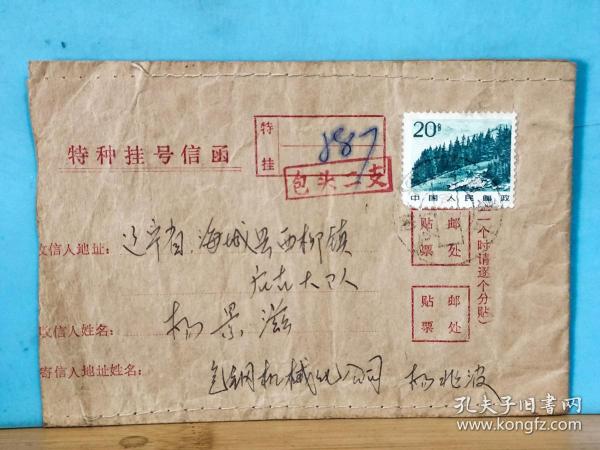 特种挂号信函
特挂
887
包头二支
20分
中国人民邮政
贴邮票处
贴邮票处
二个时请逐个分贴）
收信人地址：辽宁省海城县西柳镇
大队
收信人姓名：杨景滋
寄信人地址姓名：包钢机械化公司 杨兆波
孔夫子旧书网
www.kongfz.com